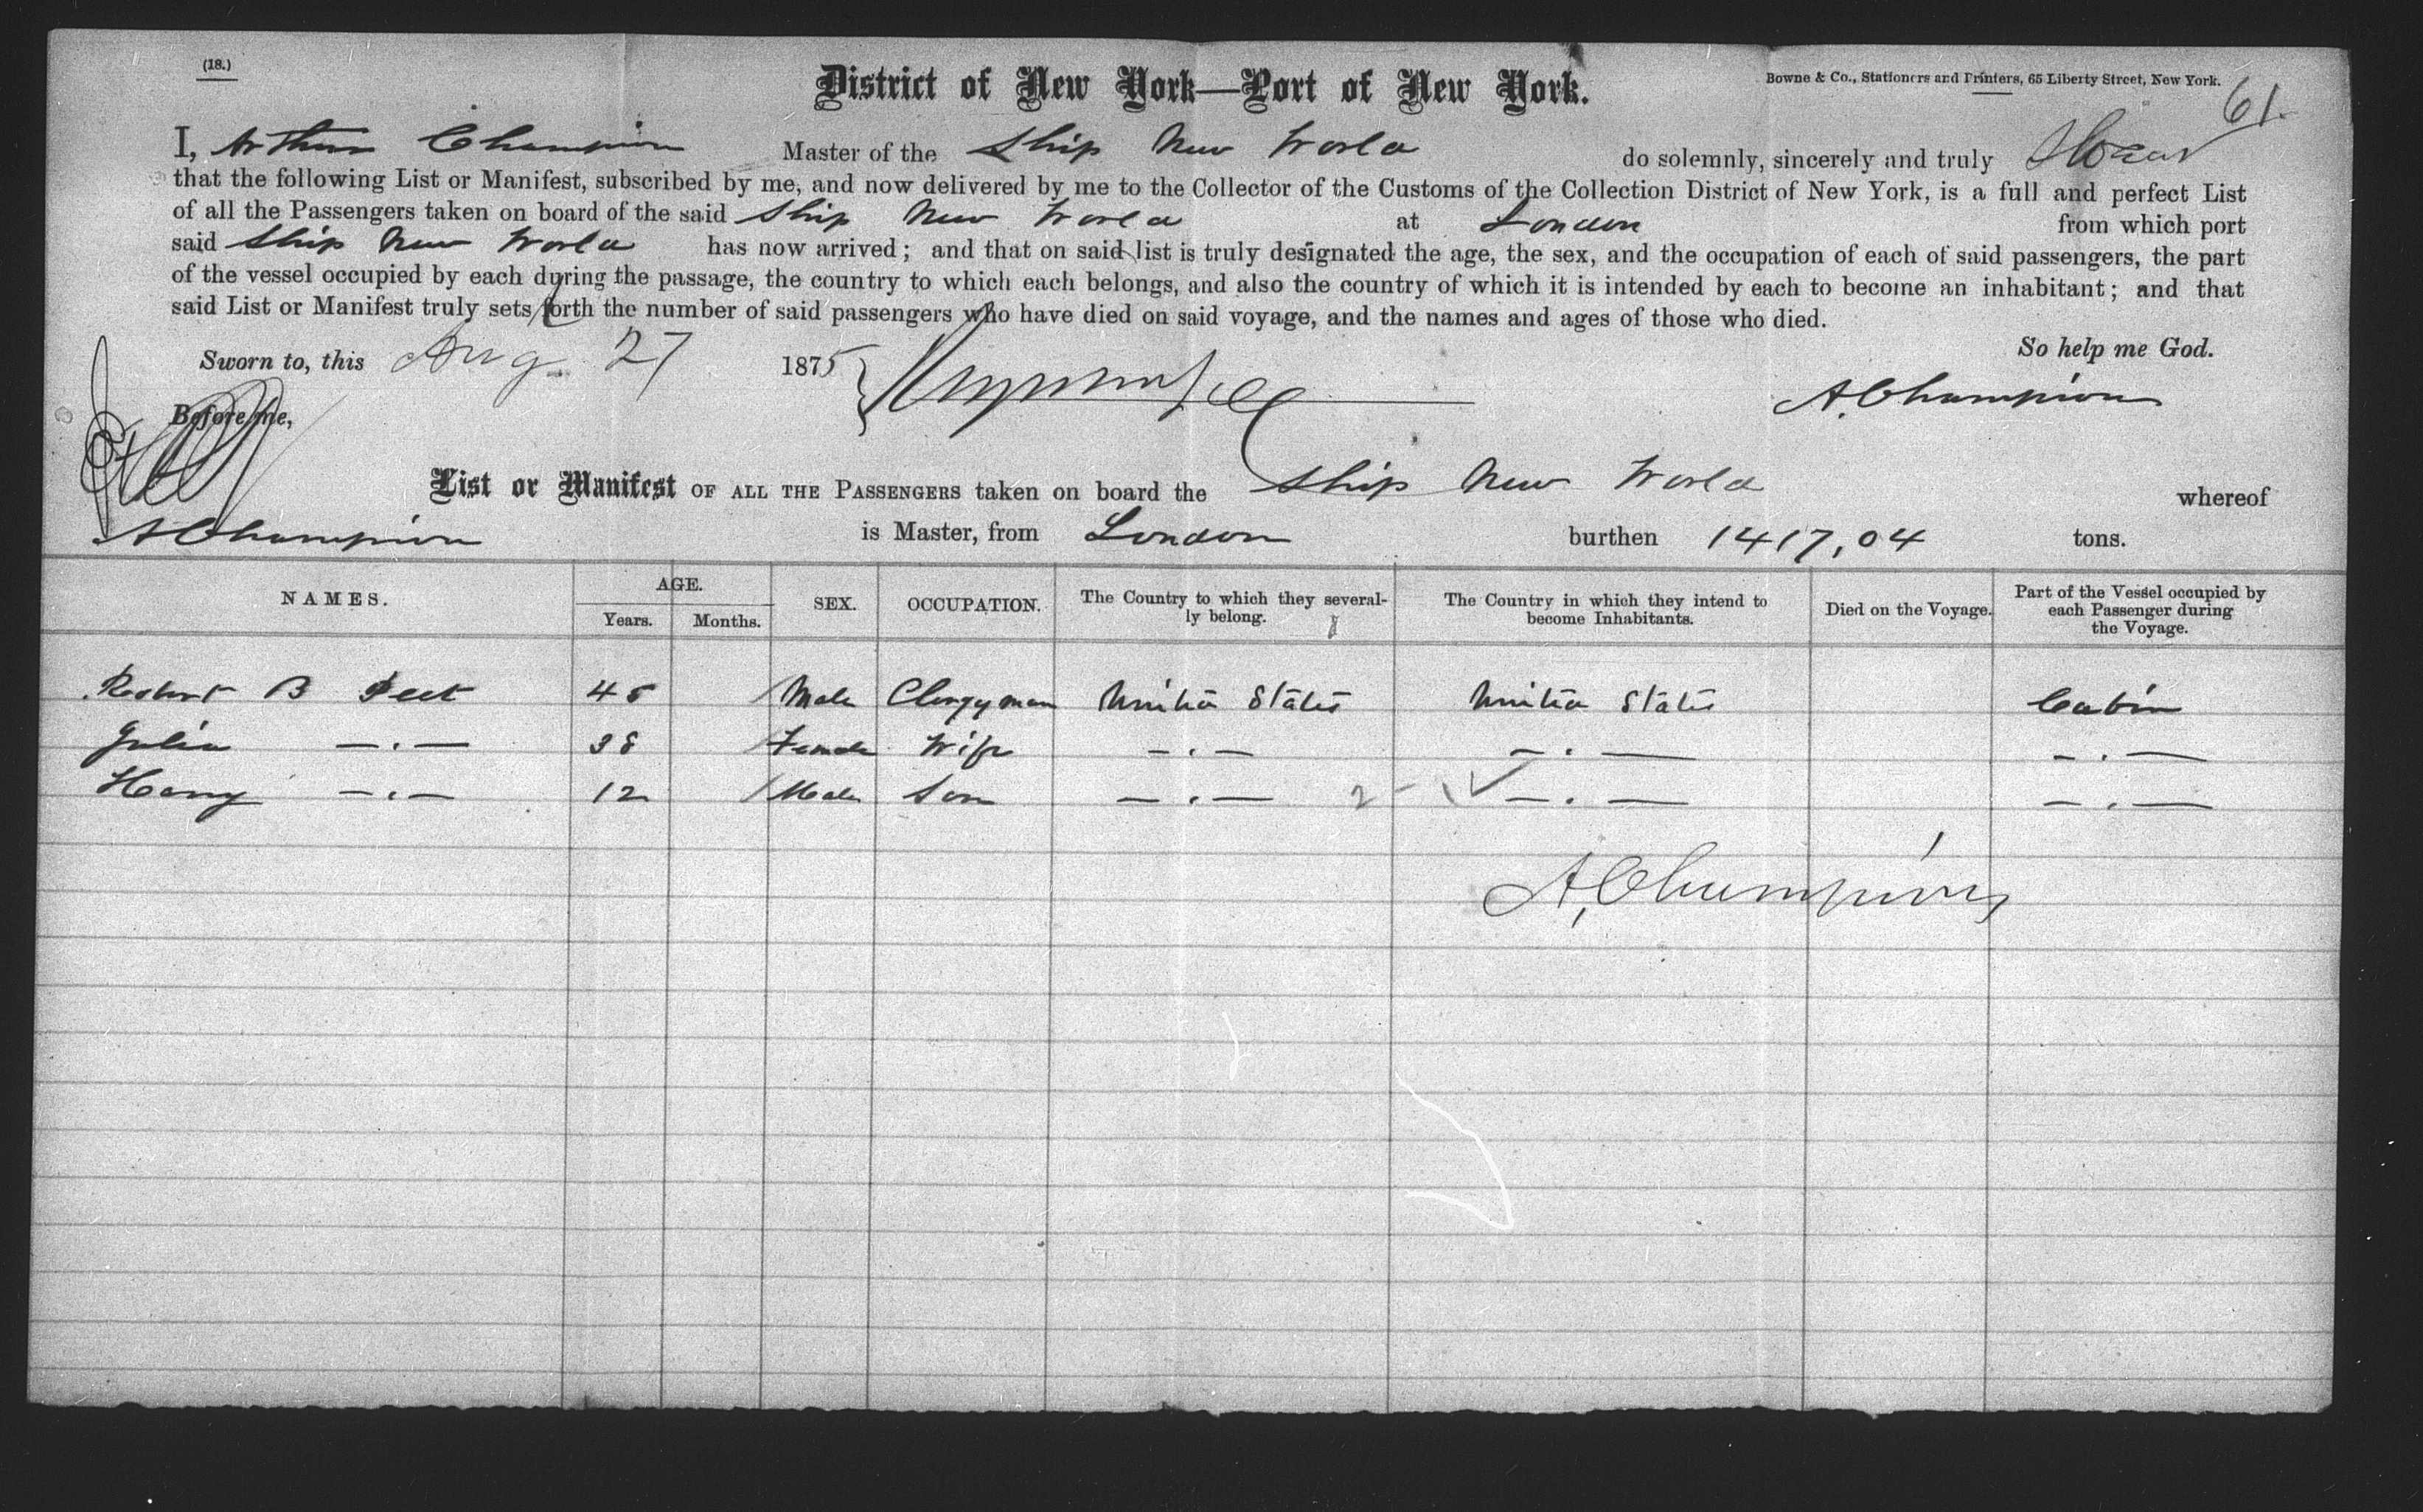 (18.)
District of New York—Port of New York.
Bowne & Co., Stationers and Printers, 65 Liberty Street, New York.
61.
I, Arthur Champion Master of the Ship New World do solemnly, sincerely and truly Swear
that the following List or Manifest, subscribed by me, and now delivered by me to the Collector of the Customs of the Collection District of New York, is a full and perfect List
of all the Passengers taken on board of the said Ship New World at London from which port
said Ship New World has now arrived; and that on said list is truly designated the age, the sex, and the occupation of each of said passengers, the part
of the vessel occupied by each during the passage, the country to which each belongs, and also the country of which it is intended by each to become an inhabitant; and that
said List or Manifest truly sets forth the number of said passengers who have died on said voyage, and the names and ages of those who died.
So help me God.
Sworn to, this Aug. 27 1875
A. Champion
Before me,
List or Manifest OF ALL THE PASSENGERS taken on board the Ship New World whereof
A Champion is Master, from London burthen 1417,04 tons.
NAMES. AGE. Years. Months. SEX. OCCUPATION. The Country to which they severally belong. The Country in which they intend to become Inhabitants. Died on the Voyage. Part of the Vessel occupied by each Passenger during the Voyage.
Robert B Peet 45 Male Clergyman United States United States Cabin
Julia —.— 38 Female Wife —.— —.— —.—
Harry —.— 12 Male Son —.— 2 —.— —.—
A. Champion